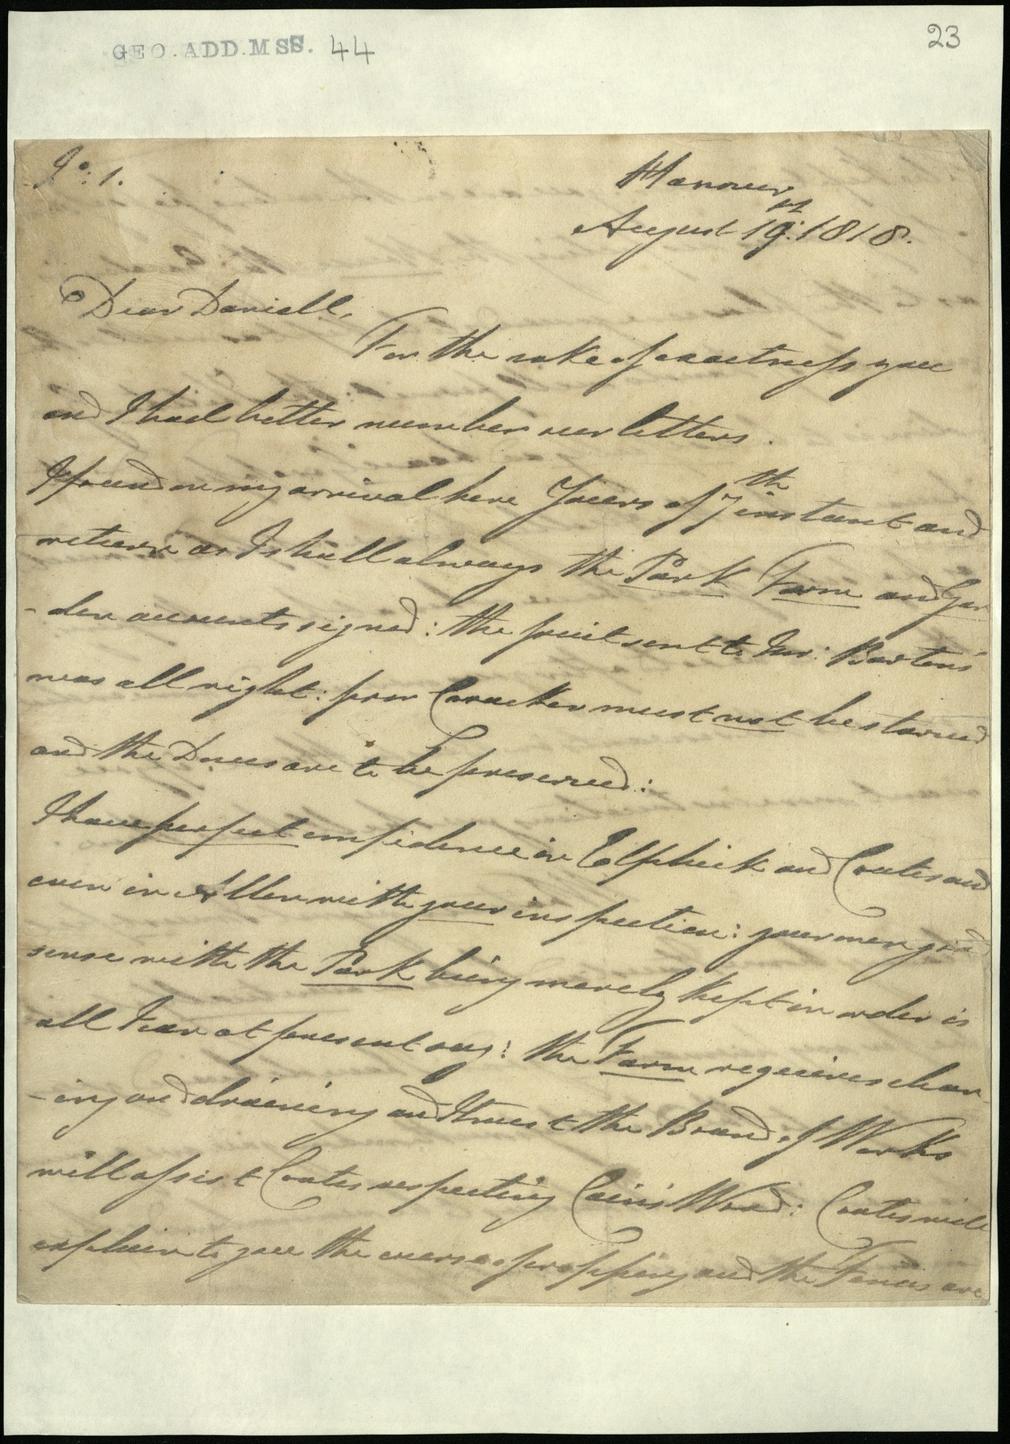 GEO. ADD. MSS. 44
23
No: 1.
Hanover
August 19th: 1818.
Dear Daniell,
For the sake of exactness you
and I had better number our letters.
I found on my arrival here Yours of 7th instant and
return as I shall always the Park Farm and Gar
-den accounts signed: the fruit sent to Mr: Barton's
was all right: poor Cracker must not be starved
and the Does are to be preserved:
I have perfect confidence in Elphick and Coates and
even in Allen with your inspection: your own good
sense with the Park being merely kept in order is
all I can at present say: the Farm requires clean
-ing and draining and I trust the Board of Works
will assist Coates respecting Wood: Coates will
explain to you the course of cropping and the Fences are